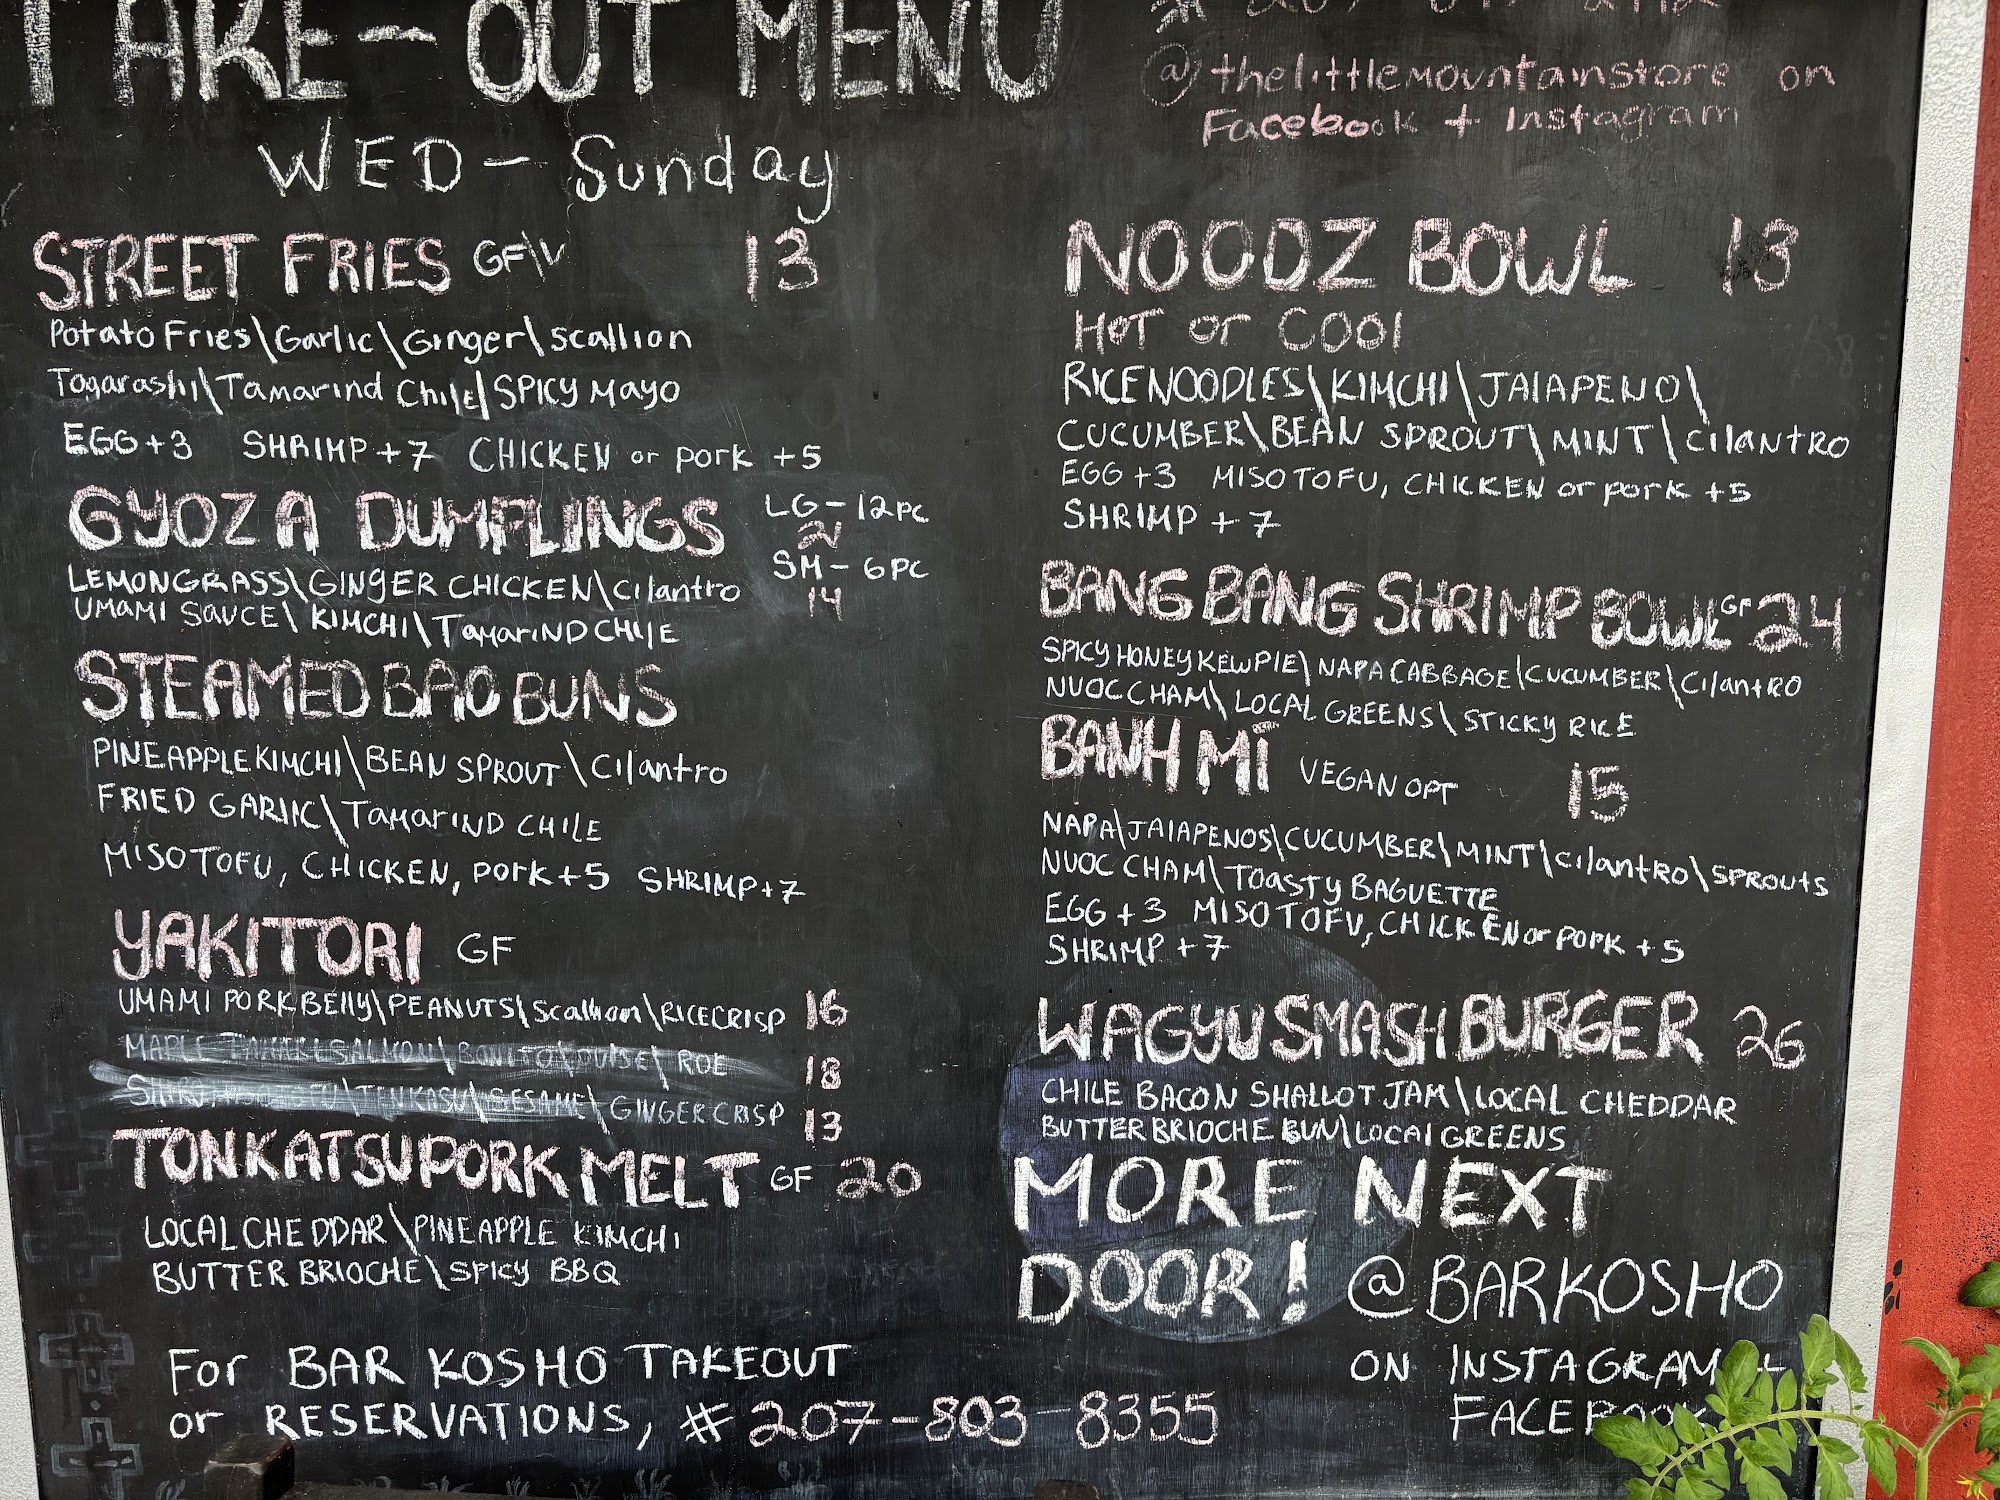 TAKE-OUT MENU
WED - Sunday
STREET FRIES GF\V 13
Potato Fries\Garlic\Ginger\scallion
Togarashi\Tamarind Chile\SPICY MAYO
EGG+3 SHRIMP+7 CHICKEN or pork +5
GYOZA DUMPLINGS LG-12PC
21
SM-6PC
14
LEMONGRASS\GINGER CHICKEN\Cilantro
UMAMI SAUCE\KIMCHI\TAMARIND CHILE
STEAMED BAO BUNS
PINEAPPLE KIMCHI\BEAN SPROUT\Cilantro
FRIED GARLIC\TAMARIND CHILE
MISO TOFU, CHICKEN, pork+5 SHRIMP+7
YAKITORI GF
UMAMI PORK BElly\PEANUTS\Scallion\RICE CRISP 16
MAPLE SALMON\BONITO\ ROE 18
\TENKASU\SESAME\GINGER CRISP 13
TONKATSU PORK MELT GF 20
LOCAL CHEDDAR\PINEAPPLE KIMCHI
BUTTER BRIOCHE\SPICY BBQ
For BAR KOSHO TAKEOUT
or RESERVATIONS, # 207-803-8355
@thelittlemountainstore on
Facebook + Instagram
NOODZ BOWL 13
HOT or COOl
RICE NOODLES\KIMCHI\JAlAPENO\
CUCUMBER\BEAN SPROUT\MINT\cilantro
EGG+3 MISO TOFU, CHICKEN or pork +5
SHRIMP +7
BANG BANG SHRIMP BOWL GF 24
SPICY HONEY KEWPIE\NAPA CABBAGE\CUCUMBER\Cilantro
NUOC CHAM\LOCAL GREENS\STICKY RICE
BANH MI VEGAN OPT 15
NAPA\JAlAPENOS\CUCUMBER\MINT\cilantro\SPROUTS
NUOC CHAM\TOASTY BAGUETTE
EGG+3 MISO TOFU, CHICKEN or pork +5
SHRIMP +7
WAGYU SMASH BURGER 26
CHILE BACON SHALLOT JAM\LOCAL CHEDDAR
BUTTER BRIOCHE BUN\LOCAl GREENS
MORE NEXT
DOOR! @BARKOSHO
ON INSTAGRAM +
FACEBOOK